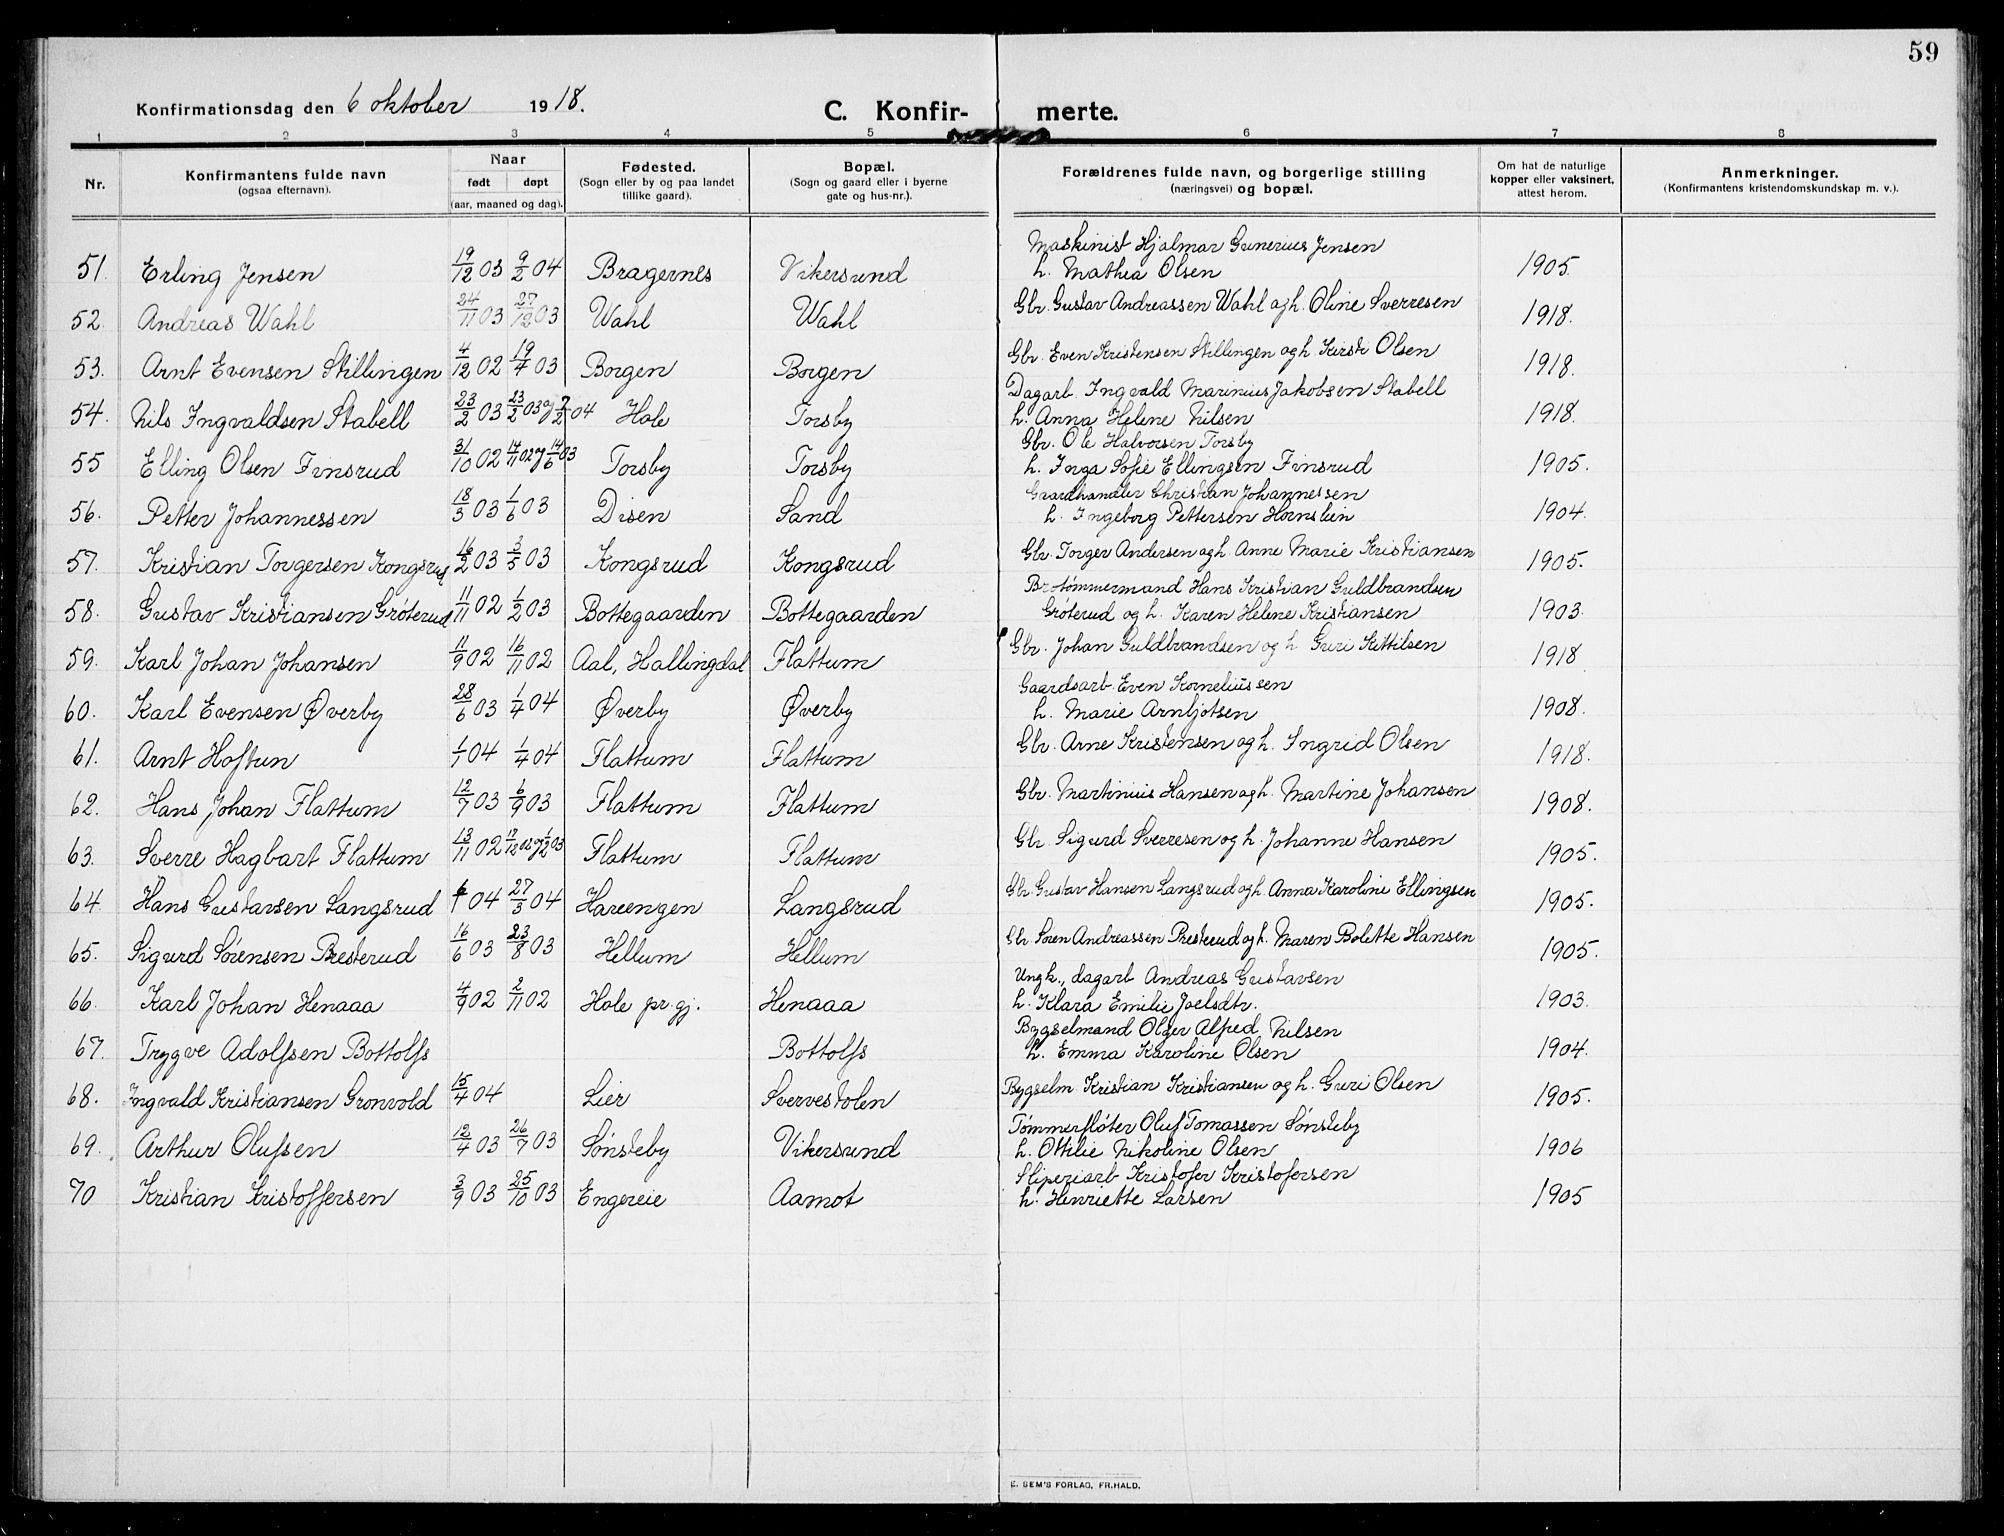 59
Konfirmationsdag den 6 oktober 1918.
C. Konfir- merte.
1 2 3 4 5 6 7 8
Nr.
Konfirmantens fulde navn
(ogsaa efternavn).
Naar
født døpt
(aar, maaned og dag).
Fødested.
(Sogn eller by og paa landet
tillike gaard).
Bopæl.
(Sogn og gaard eller i byerne
gate og hus-nr.).
Forældrenes fulde navn, og borgerlige stilling
(næringsvei) og bopæl.
Om hat de naturlige
kopper eller vaksinert,
attest herom.
Anmerkninger.
(Konfirmantens kristendomskundskap m. v.).
51. Erling Jensen 19/12 03 9/2 04 Bragernes Vikersund Maskinist Hjalmar Gunerius Jensen
h. Mathea Olsen 1905.
52. Andreas Wahl 24/11 03 27/12 03 Wahl Wahl Gbr. Gustav Andreassen Wahl og h. Oline Sverresen 1918.
53. Arnt Evensen Stillingen 4/12 02 19/4 03 Borgen Borgen Gbr. Even Kristensen Stillingen og h. Kirsti Olsen 1918.
54. Nils Ingvaldsen Stabell 23/2 03 23/2 03 og 7/2 04 Hole Torsby Dagarb. Ingvald Marinius Jakobsen Stabell
h. Anna Helene Nilsen 1918.
55 Elling Olsen Finsrud 31/10 02 14/11 02 og 14/6 03 Torsby Torsby Gbr. Ole Halvorsen Torsby
h. Inga Sofie Ellingsen Finsrud 1905.
56. Petter Johannessen 18/3 03 1/6 03 Disen Sand Gaardhandler Christian Johannessen
h. Ingeborg Pettersen Hornslien 1904.
57. Kristian Torgersen Kongsrud 16/2 03 3/5 03 Kongsrud Kongsrud Gbr. Torger Andersen og h. Anne Marie Kristiansen 1905.
58. Gustav Kristiansen Grøterud 11/11 02 1/2 03 Bottegaarden Bottegaarden Brotømmermand Hans Kristian Guldbrandsen
Grøterud og h. Karen Helene Kristiansen 1903.
59. Karl Johan Johansen 11/9 02 16/11 02 Aal, Hallingdal Flattum Gbr. Johan Guldbrandsen og h Guri Kittilsen 1918
60. Karl Evensen Øverby 28/6 03 1/4 04 Øverby Øverby Gaardsarb. Even Korneliussen
h. Marie Arnljotsen 1908.
61. Arnt Hoftun 1/1 04 1/4 04 Flattum Flattum Gbr. Arne Kristensen og h. Ingrid Olsen 1918.
62. Hans Johan Flattum 12/7 03 6/9 03 Flattum Flattum Gbr. Martinius Hansen og h. Martine Johansen 1908.
63. Sverre Hagbart Flattum 13/11 02 17/12 02 og 1/2 03 Flattum Flattum Gbr Sigurd Sverresen og h. Johanne Hansen 1905.
64. Hans Gustavsen Langsrud 04 27/3 04 Hareengen Langsrud Gbr. Gustav Hansen Langsrud og h. Anna Karoline Ellingsen 1905.
65. Sigurd Sørensen Presterud 16/6 03 23/8 03 Hellum Hellum Gbr. Søren Andreassen Presterud og h. Maren Bolette Hansen 1905.
66. Karl Johan Henaaa 4/9 02 2/11 02 Hole pr. gj. Henaaa Ungk., dagarb Andreas Gustavsen
h. Klara Emilie Joelsdtr. 1903.
67. Trygve Adolfsen Bottolfs Bottolfs Bygselmand Olger Alfred Nilsen
h. Emma Karoline Olsen 1904.
68. Ingvald Kristiansen Gronvold 15/4 04 Lier Svervestolen Bygselm. Kristian Kristiansen og h. Guri Olsen 1905.
69. Arthur Olufsen 12/4 03 26/7 03 Sønsteby Vikersund Tømmerfløter Oluf Tomassen Sønsteby
h. Ottilie Nikoline Olsen 1906
70 Kristian Kristoffersen 3/9 03 25/10 03 Engereie Aamot Sliperiarb Kristofer Kristofersen
h. Henriette Larsen 1905
E. SEM'S FORLAG, FR.HALD.